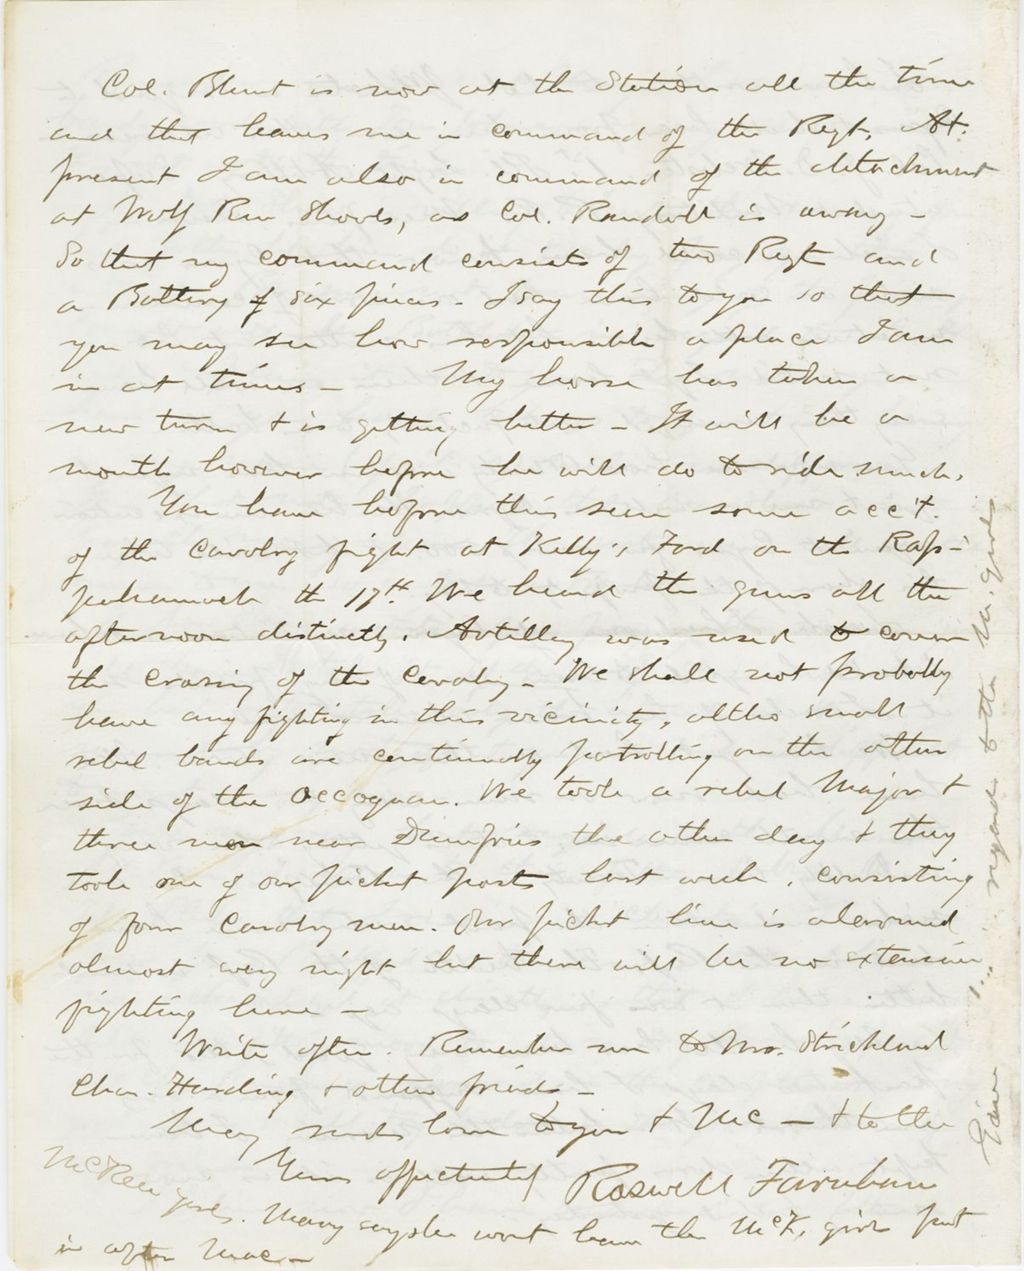 Col. Blunt is now at the Station all the time
and that leaves me in command of the Regt. At
present I am also in command of the detachment
at Wolf Run Shoals, as Col. Randall is away -
So that my command consists of two Regt and
a Battery of six pieces - I say this to you so that
you may see how responsible a place I am
in at times - My horse has taken a
new turn & is getting better - It will be a
month however before he will do to ride much.
You have before this seen some acc't.
of the Cavalry fight at Kelly's Ford on the Rap-
pahannock the 17th. We heard the guns all the
afternoon distinctly. Artillery was used to cover
the crossing of the Cavalry - We shall not probably
have any fighting in this vicinity, altho small
rebel bands are continually patrolling on the other
side of the Occoquan. We took a rebel Major &
three men near Dumfries the other day & they
took one of our picket posts last week, consisting
of four Cavalry men. Our picket line is alarmed
almost every night but there will be no extensive
fighting here -
Write often. Remember me to Mrs. Strickland
Chas. Harding & other friends -
Mary sends love to you & Mc - & to the
McKeen girls. Mary says she wont have the McK. girls put
in after Mac -
Yours affectionately Roswell Farnham
Give regards to the girls